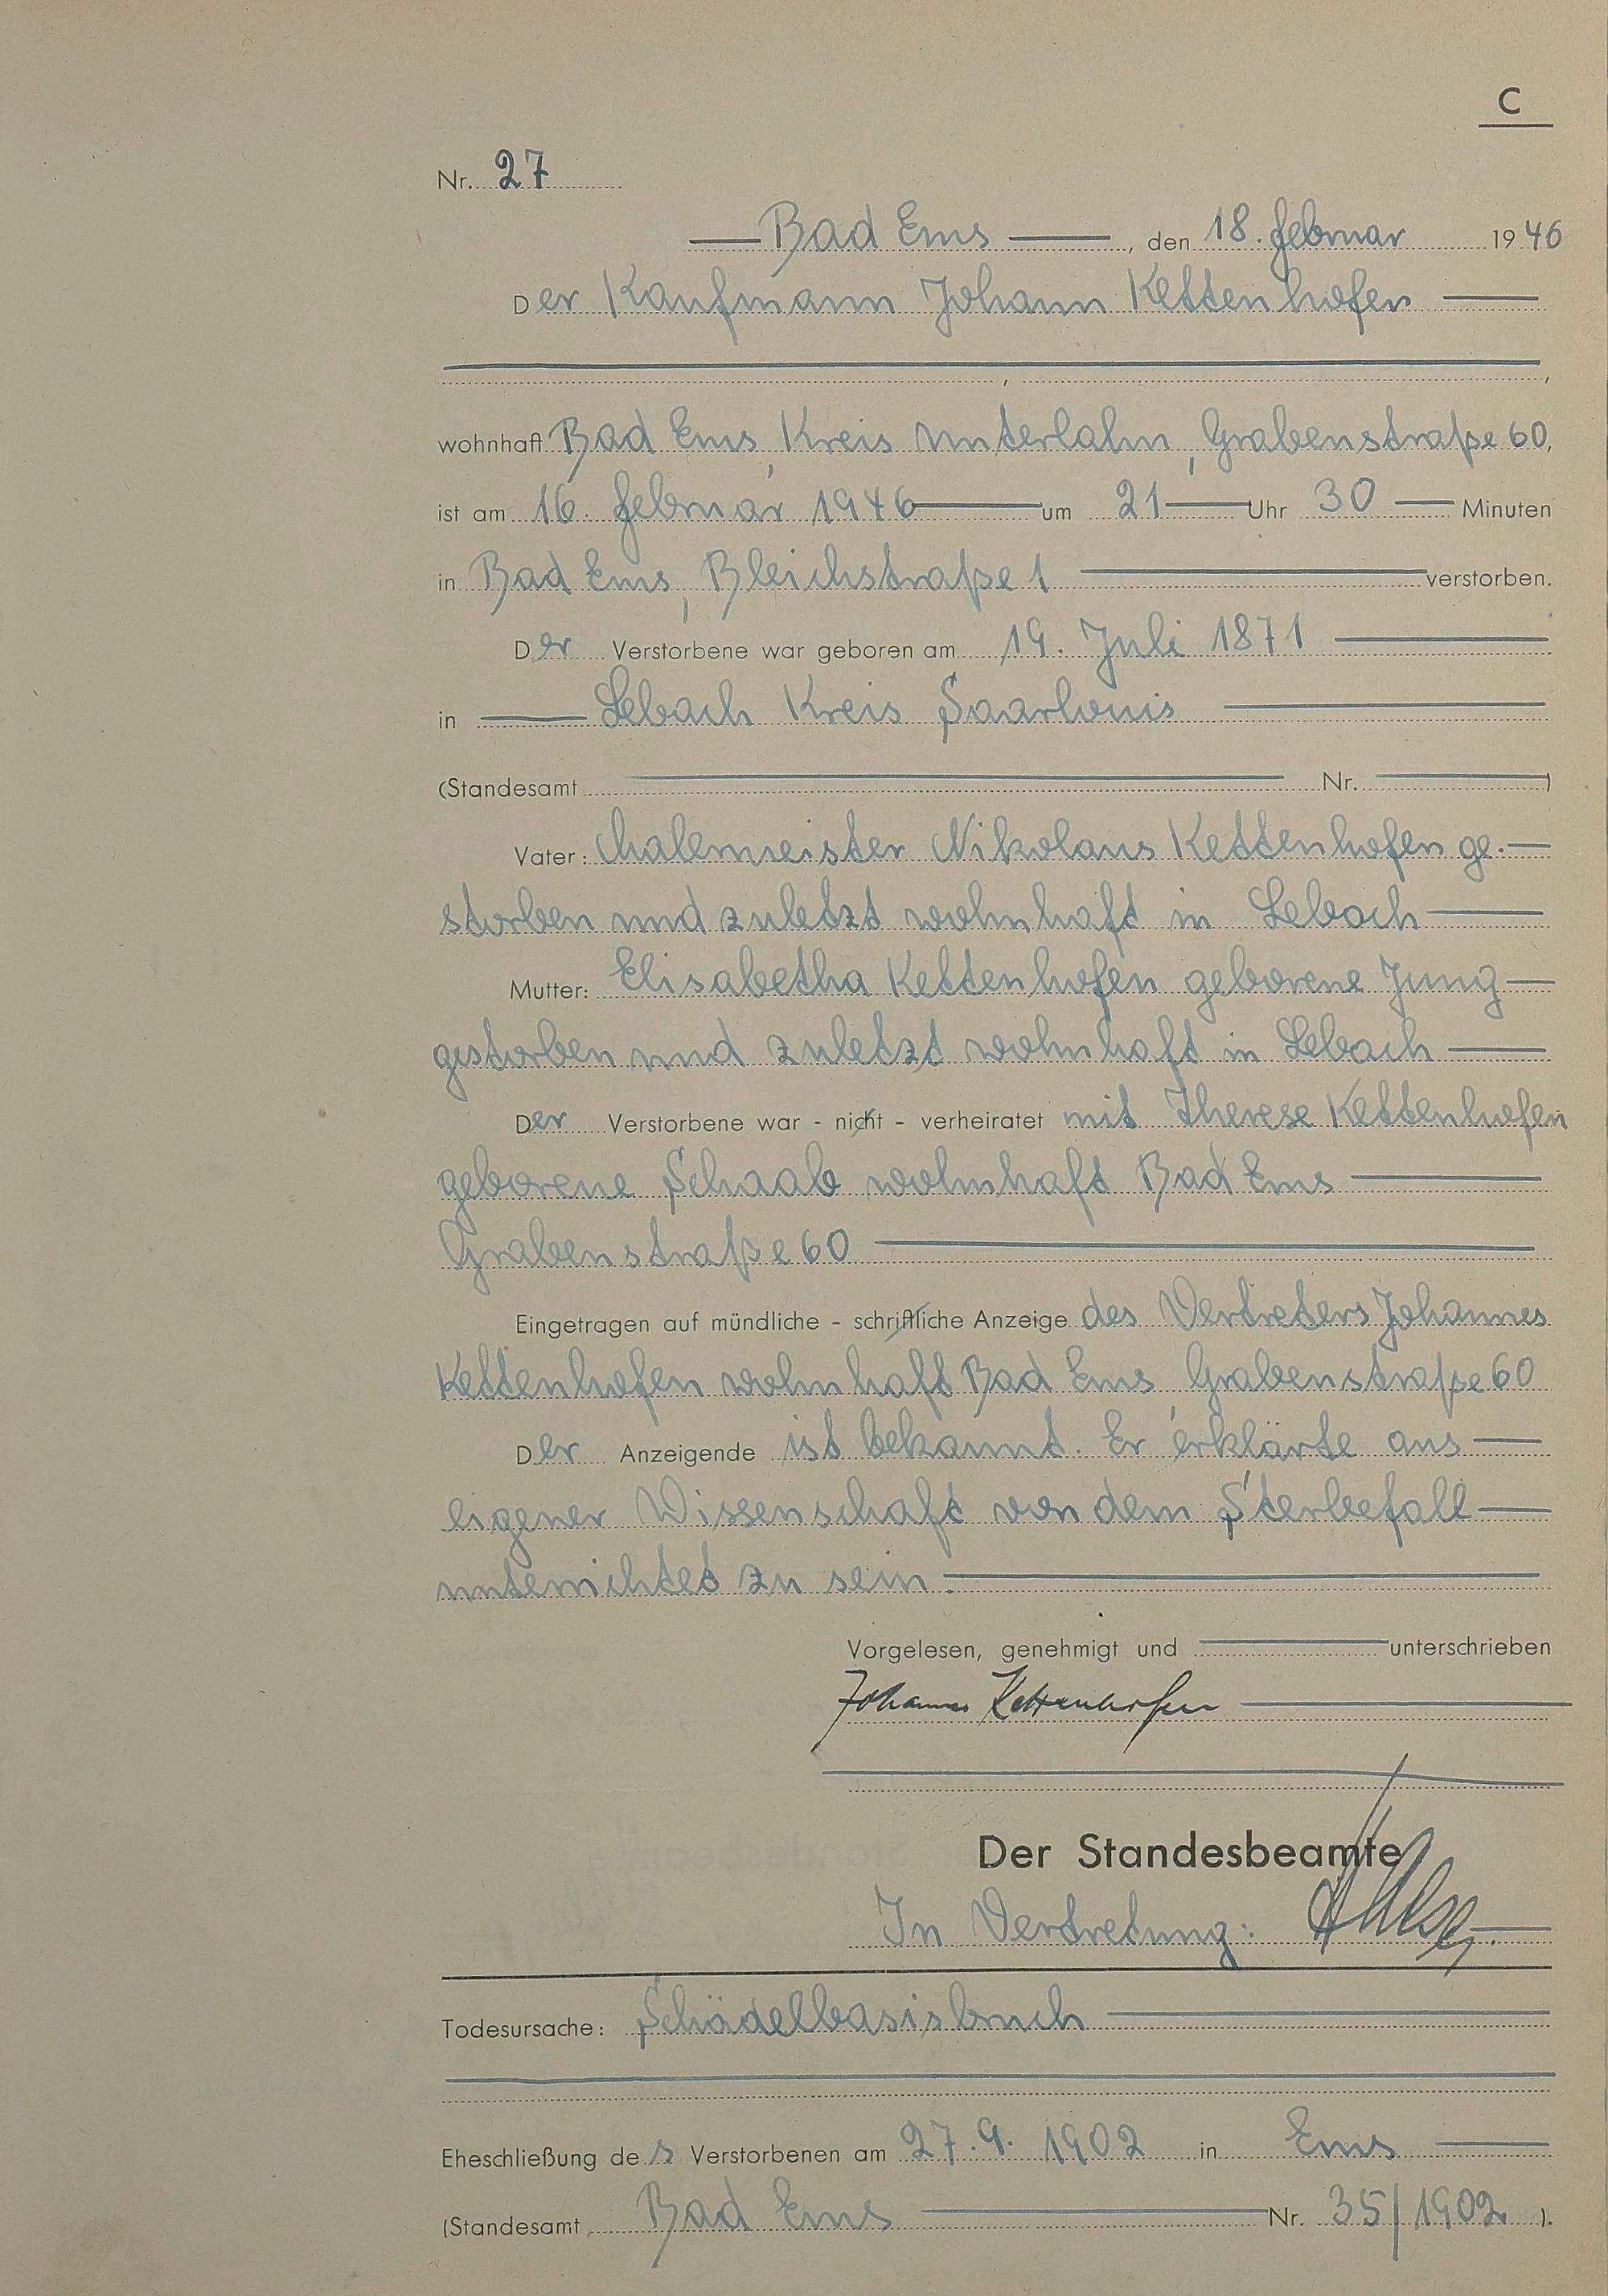 C
Nr. 27
Bad Ems, den 18. Februar 1946
Der Kaufmann Johann Kettenhofen
wohnhaft Bad Ems, Kreis Unterlahn, Grabenstraße 60,
ist am 16. Februar 1946 um 21 Uhr 30 Minuten
in Bad Ems, Bleichstraße 1 verstorben.
Der Verstorbene war geboren am 19. Juli 1871
in Lebach Kreis Saarlouis
(Standesamt Nr. )
Vater: Malermeister Nikolaus Kettenhofen ge-
storben und zuletzt wohnhaft in Lebach
Mutter: Elisabetha Kettenhofen geborene Jung
gestorben und zuletzt wohnhaft in Lebach
Der Verstorbene war - nicht - verheiratet mit Therese Kettenhofen
geborene Schaab wohnhaft Bad Ems
Grabenstraße 60
Eingetragen auf mündliche - schriftliche Anzeige des Vertreters Johannes
Kettenhofen wohnhaft Bad Ems, Grabenstraße 60
Der Anzeigende ist bekannt. Er erklärte aus
eigener Wissenschaft von dem Sterbefall
unterrichtet zu sein.
Vorgelesen, genehmigt und unterschrieben
Johannes Kettenhofen
Der Standesbeamte
In Vertretung:
Todesursache: Schädelbasisbruch
Eheschließung des Verstorbenen am 27.9. 1902 in Ems
(Standesamt Bad Ems Nr. 35/1902 ).